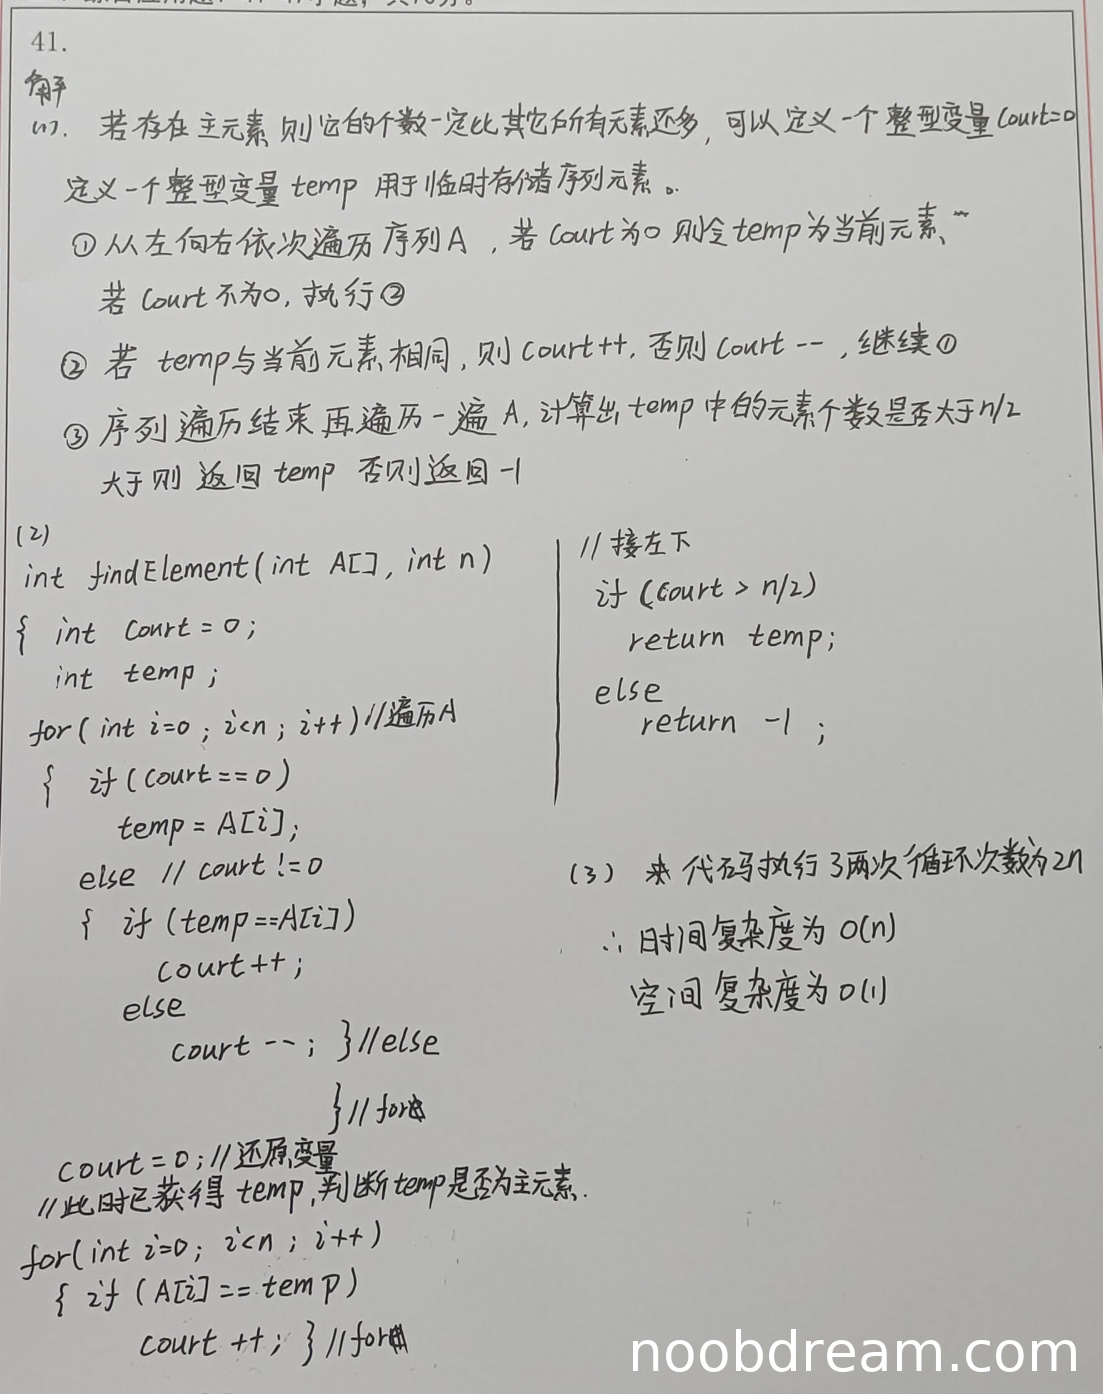 41.
解
(1). 若存在主元素则它的个数一定比其它所有元素还多,可以定义一个整型变量court=0
定义一个整型变量temp 用于临时存储序列元素。
①从左向右依次遍历序列A,若court为0则令temp为当前元素、
若court不为0,执行②
② 若 temp与当前元素相同,则court++,否则court--,继续①
③序列遍历结束再遍历一遍A,计算出temp中的元素个数是否大于n/2
大于则 返回temp 否则返回-1
(2)
int findElement(int A[], int n)
{ int court=0;
int temp;
for(int i=0; i<n; i++)//遍历A
{ if(court==0)
temp=A[i];
else //court!=0
{ if(temp==A[i])
court++;
else
court--; }//else
}//for
court=0;//还原变量
//此时已获得temp,判断temp是否为主元素.
for(int i=0; i<n; i++)
{ if(A[i]==temp)
court++; }//for
//接左下
if(court>n/2)
return temp;
else
return -1;
(3) 代码执行了两次循环次数为2n
∴时间复杂度为O(n)
空间复杂度为O(1)
noobdream.com